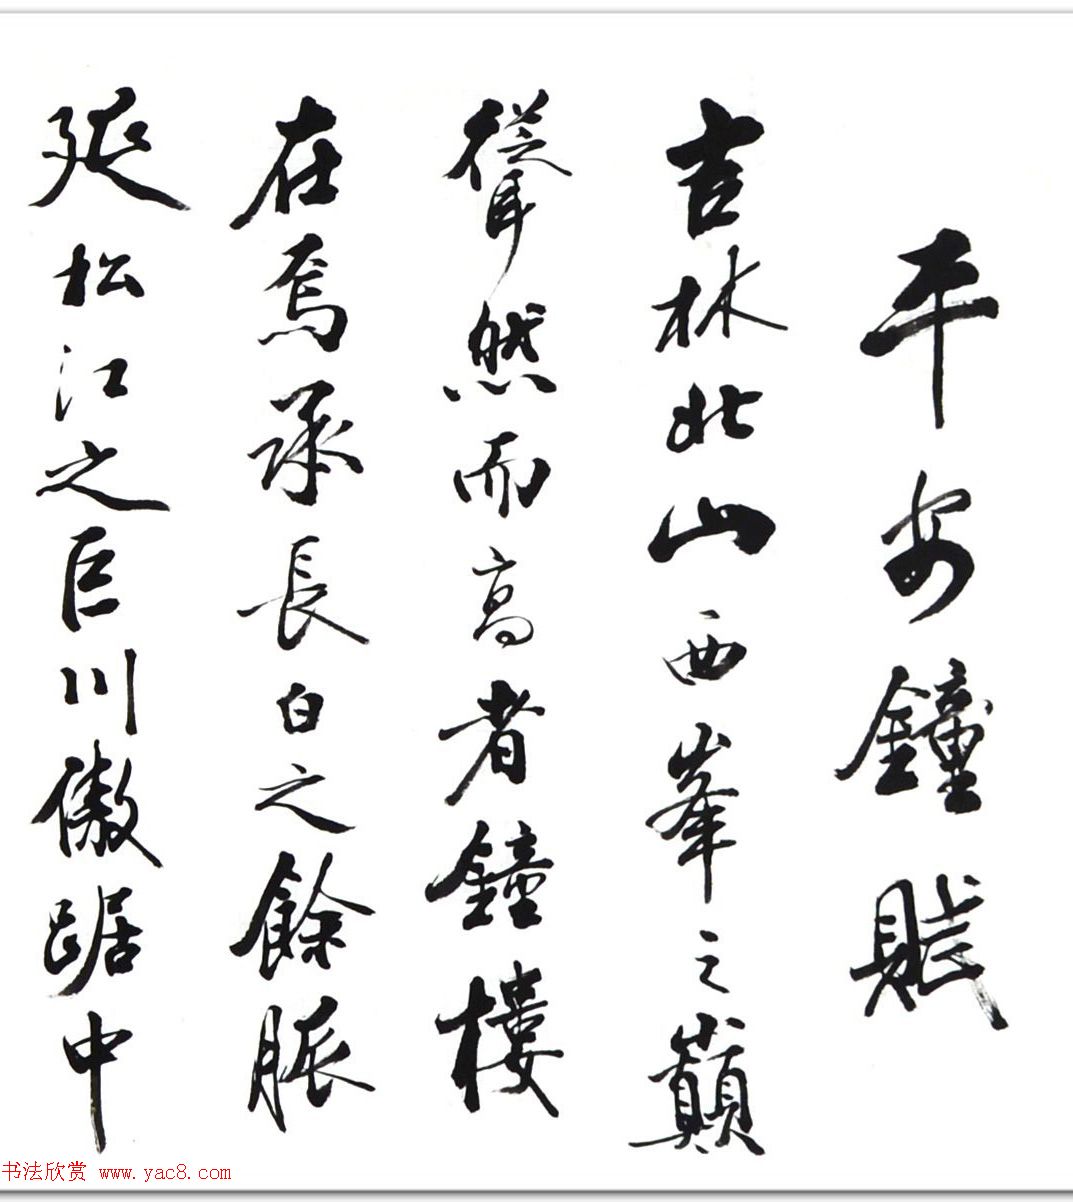 平安鐘賦
吉林北山西峯之巔
聳然而高者鐘樓
在焉承長白之餘脈
延松江之巨川傲踞中
书法欣赏 www.yac8.com